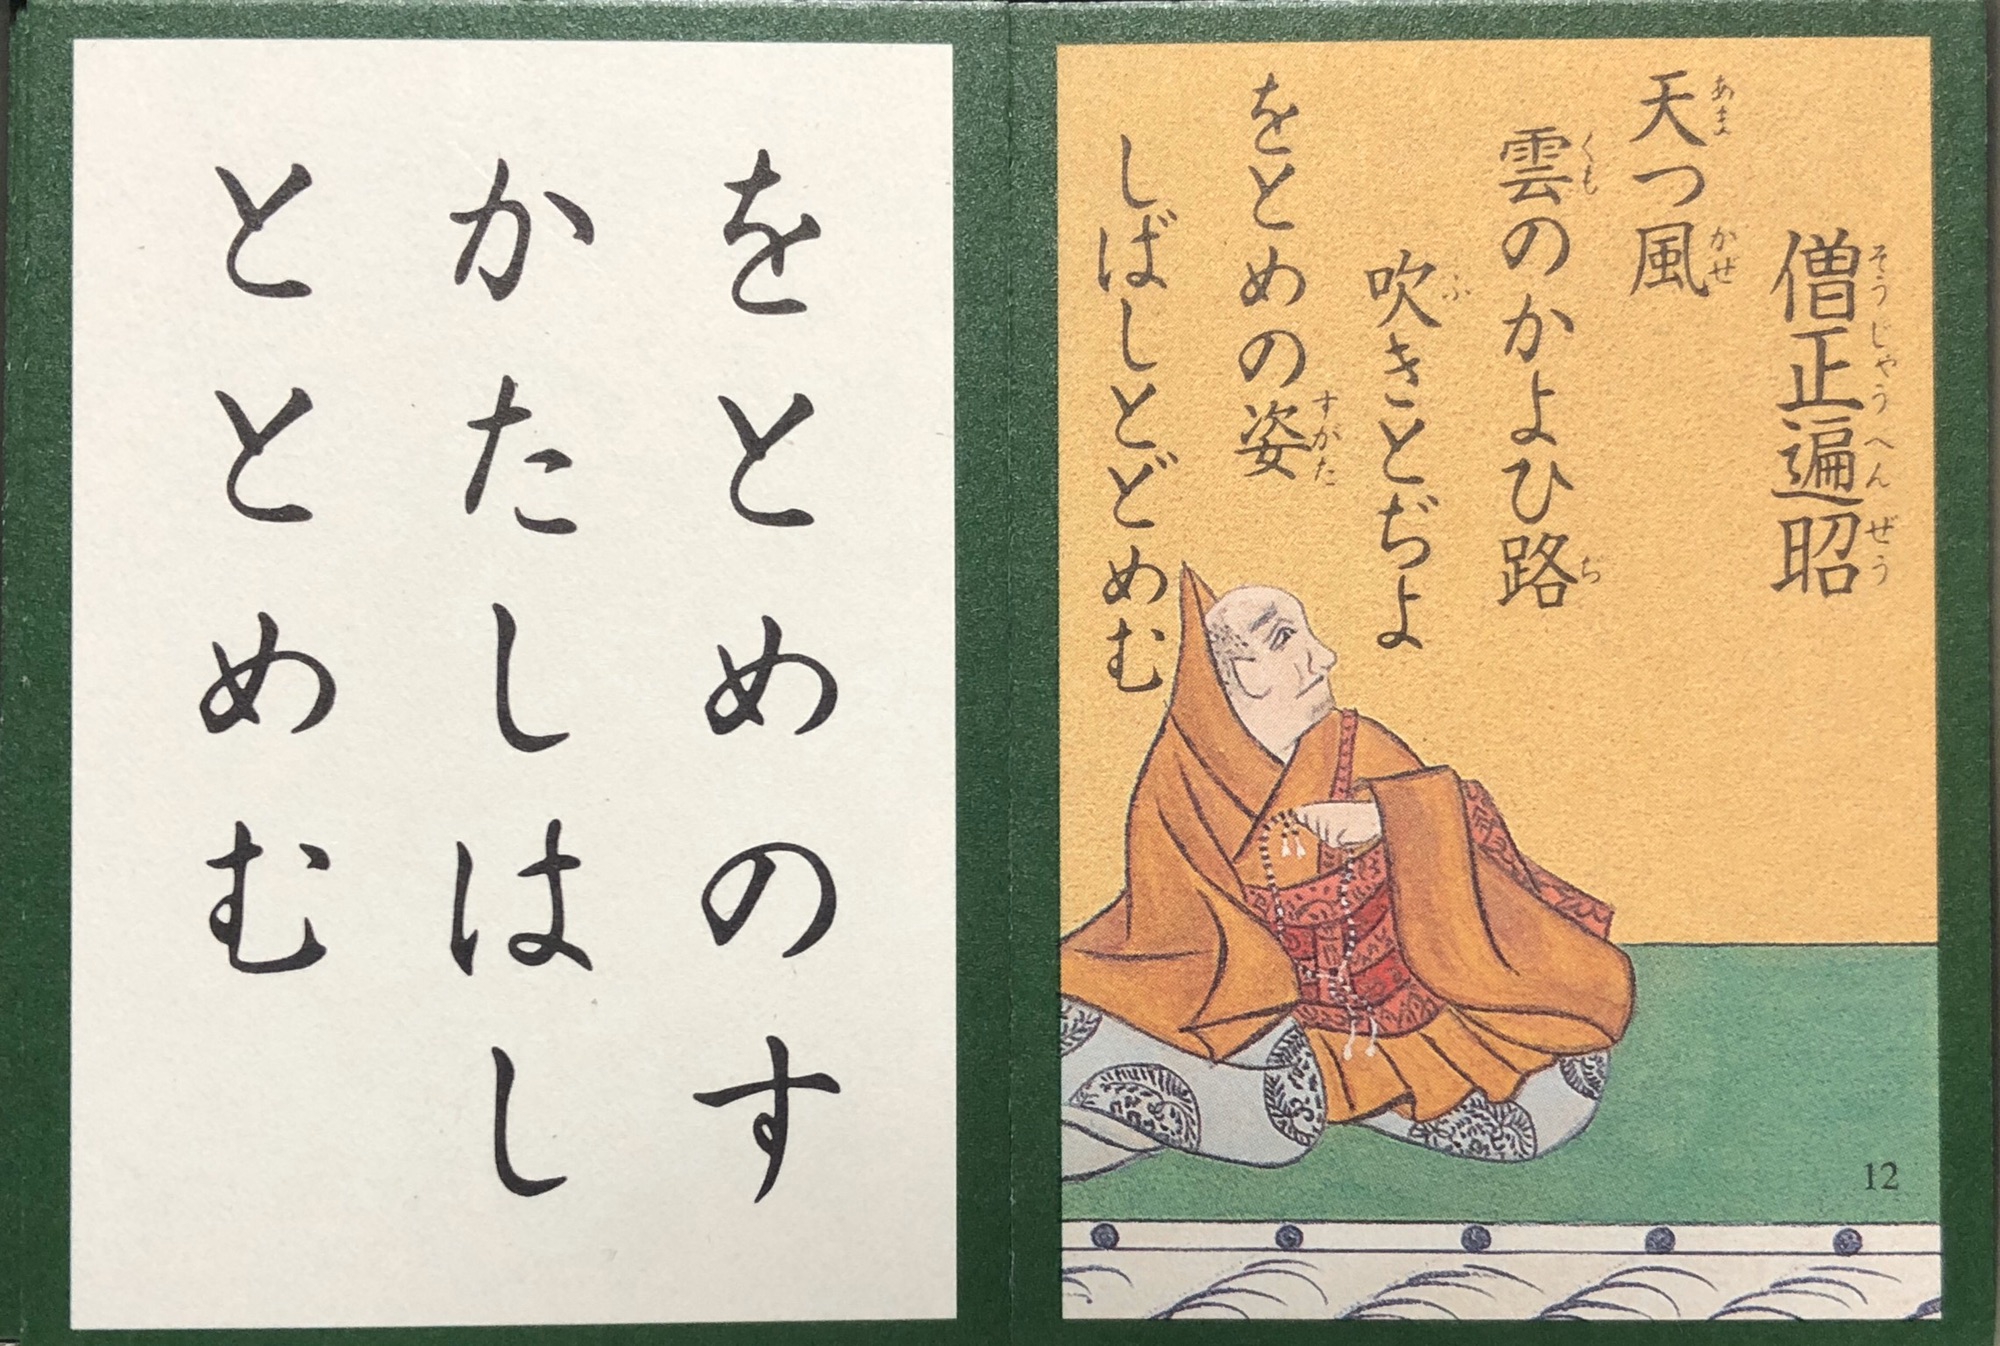 僧正遍昭
そうじゃうへんぜう
天つ風
あま かぜ
雲のかよひ路
くも ぢ
吹きとぢよ
ふ
をとめの姿
すがた
しばしとどめむ
12
をとめのす
かたしはし
ととめむ